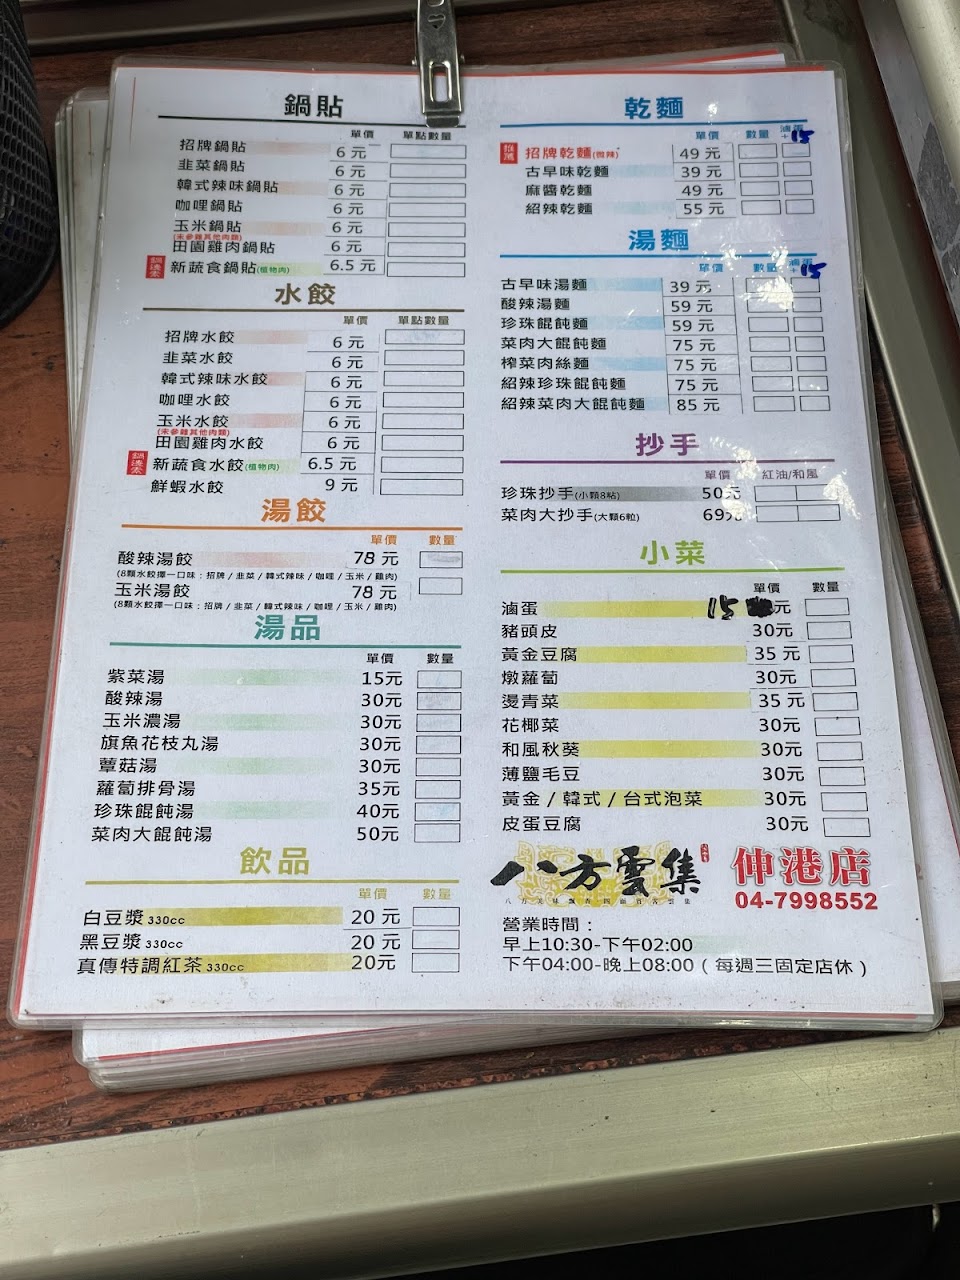 鍋貼
單價 單點數量
招牌鍋貼 6 元
韭菜鍋貼 6 元
韓式辣味鍋貼 6 元
咖哩鍋貼 6 元
玉米鍋貼 6 元
(未參雜其他肉類)
田園雞肉鍋貼 6 元
鍋邊素 新蔬食鍋貼(植物肉) 6.5 元
水餃
單價 單點數量
招牌水餃 6 元
韭菜水餃 6 元
韓式辣味水餃 6 元
咖哩水餃 6 元
玉米水餃 6 元
(未參雜其他肉類)
田園雞肉水餃 6 元
鍋邊素 新蔬食水餃(植物肉) 6.5 元
鮮蝦水餃 9 元
湯餃
單價 數量
酸辣湯餃 78 元
(8顆水餃擇一口味：招牌/韭菜/韓式辣味/咖哩/玉米/雞肉)
玉米湯餃 78 元
(8顆水餃擇一口味：招牌/韭菜/韓式辣味/咖哩/玉米/雞肉)
湯品
單價 數量
紫菜湯 15元
酸辣湯 30元
玉米濃湯 30元
旗魚花枝丸湯 30元
蕈菇湯 30元
蘿蔔排骨湯 35元
珍珠餛飩湯 40元
菜肉大餛飩湯 50元
飲品
單價 數量
白豆漿 330cc 20 元
黑豆漿 330cc 20 元
真傳特調紅茶 330cc 20元
乾麵
單價 數量 滷蛋+15
推薦 招牌乾麵(微辣) 49 元
古早味乾麵 39 元
麻醬乾麵 49 元
紹辣乾麵 55 元
湯麵
單價 數量 滷蛋+15
古早味湯麵 39 元
酸辣湯麵 59 元
珍珠餛飩麵 59 元
菜肉大餛飩麵 75 元
榨菜肉絲麵 75 元
紹辣珍珠餛飩麵 75 元
紹辣菜肉大餛飩麵 85 元
抄手
單價 紅油/和風
珍珠抄手(小顆8粒) 50元
菜肉大抄手(大顆6粒) 69元
小菜
單價 數量
滷蛋 15 元
豬頭皮 30元
黃金豆腐 35 元
燉蘿蔔 30元
燙青菜 35 元
花椰菜 30元
和風秋葵 30元
薄鹽毛豆 30元
黃金/韓式/台式泡菜 30元
皮蛋豆腐 30元
八方雲集 伸港店
04-7998552
營業時間：
早上10:30-下午02:00
下午04:00-晚上08:00（每週三固定店休）